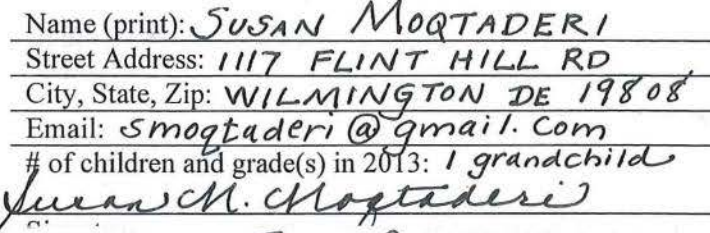 Name (print): SUSAN MOQTADERI
Street Address: 1117 FLINT HILL RD
City, State, Zip: WILMINGTON DE 19808
Email: smoqtaderi@gmail.com
# of children and grade(s) in 2013: 1 grandchild
Susan M. Moqtaderi